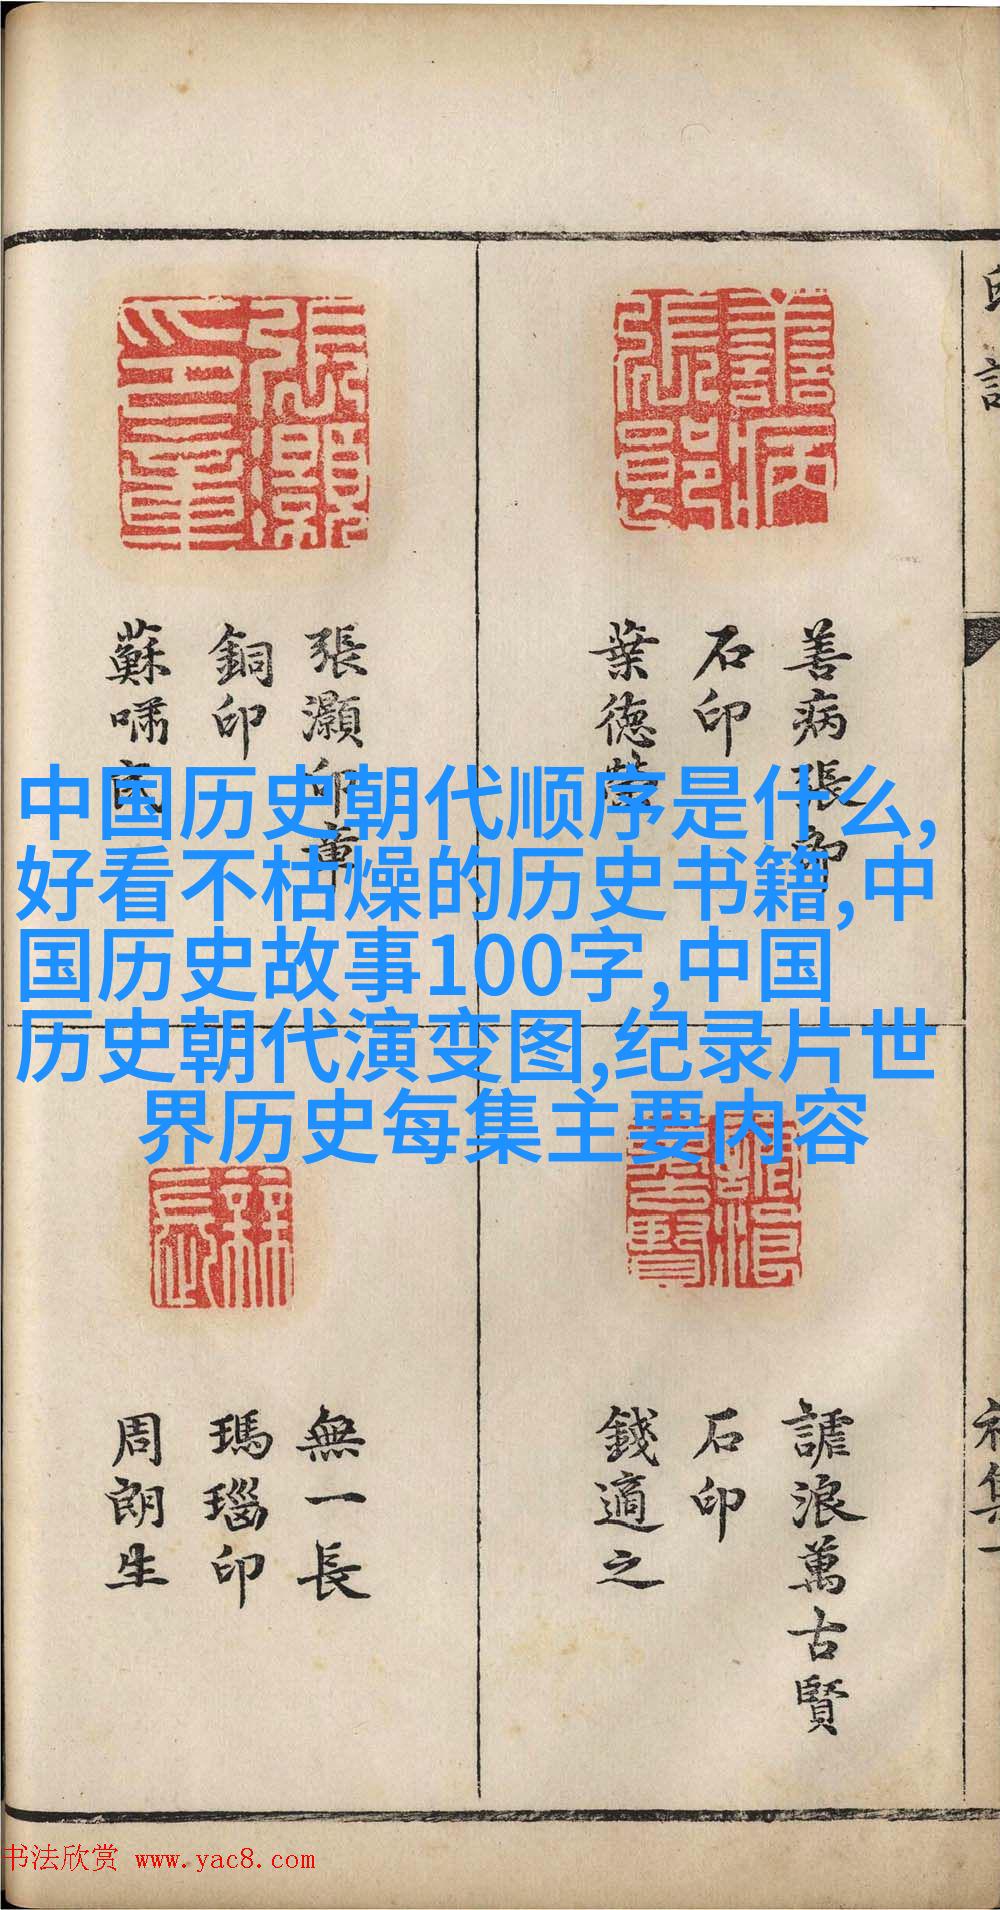 張灝印章
善病張
石印
葉德
張灝印章
銅印
蘇嘯民
中国历史朝代顺序是什么,
好看不枯燥的历史书籍,中
国历史故事100字,中国
历史朝代演变图,纪录片世
界历史每集主要内容
謔浪萬古賢
謔浪萬古賢
石印
錢適之
無一長
瑪瑙印
周朗生
书法欣赏 www.yac8.com